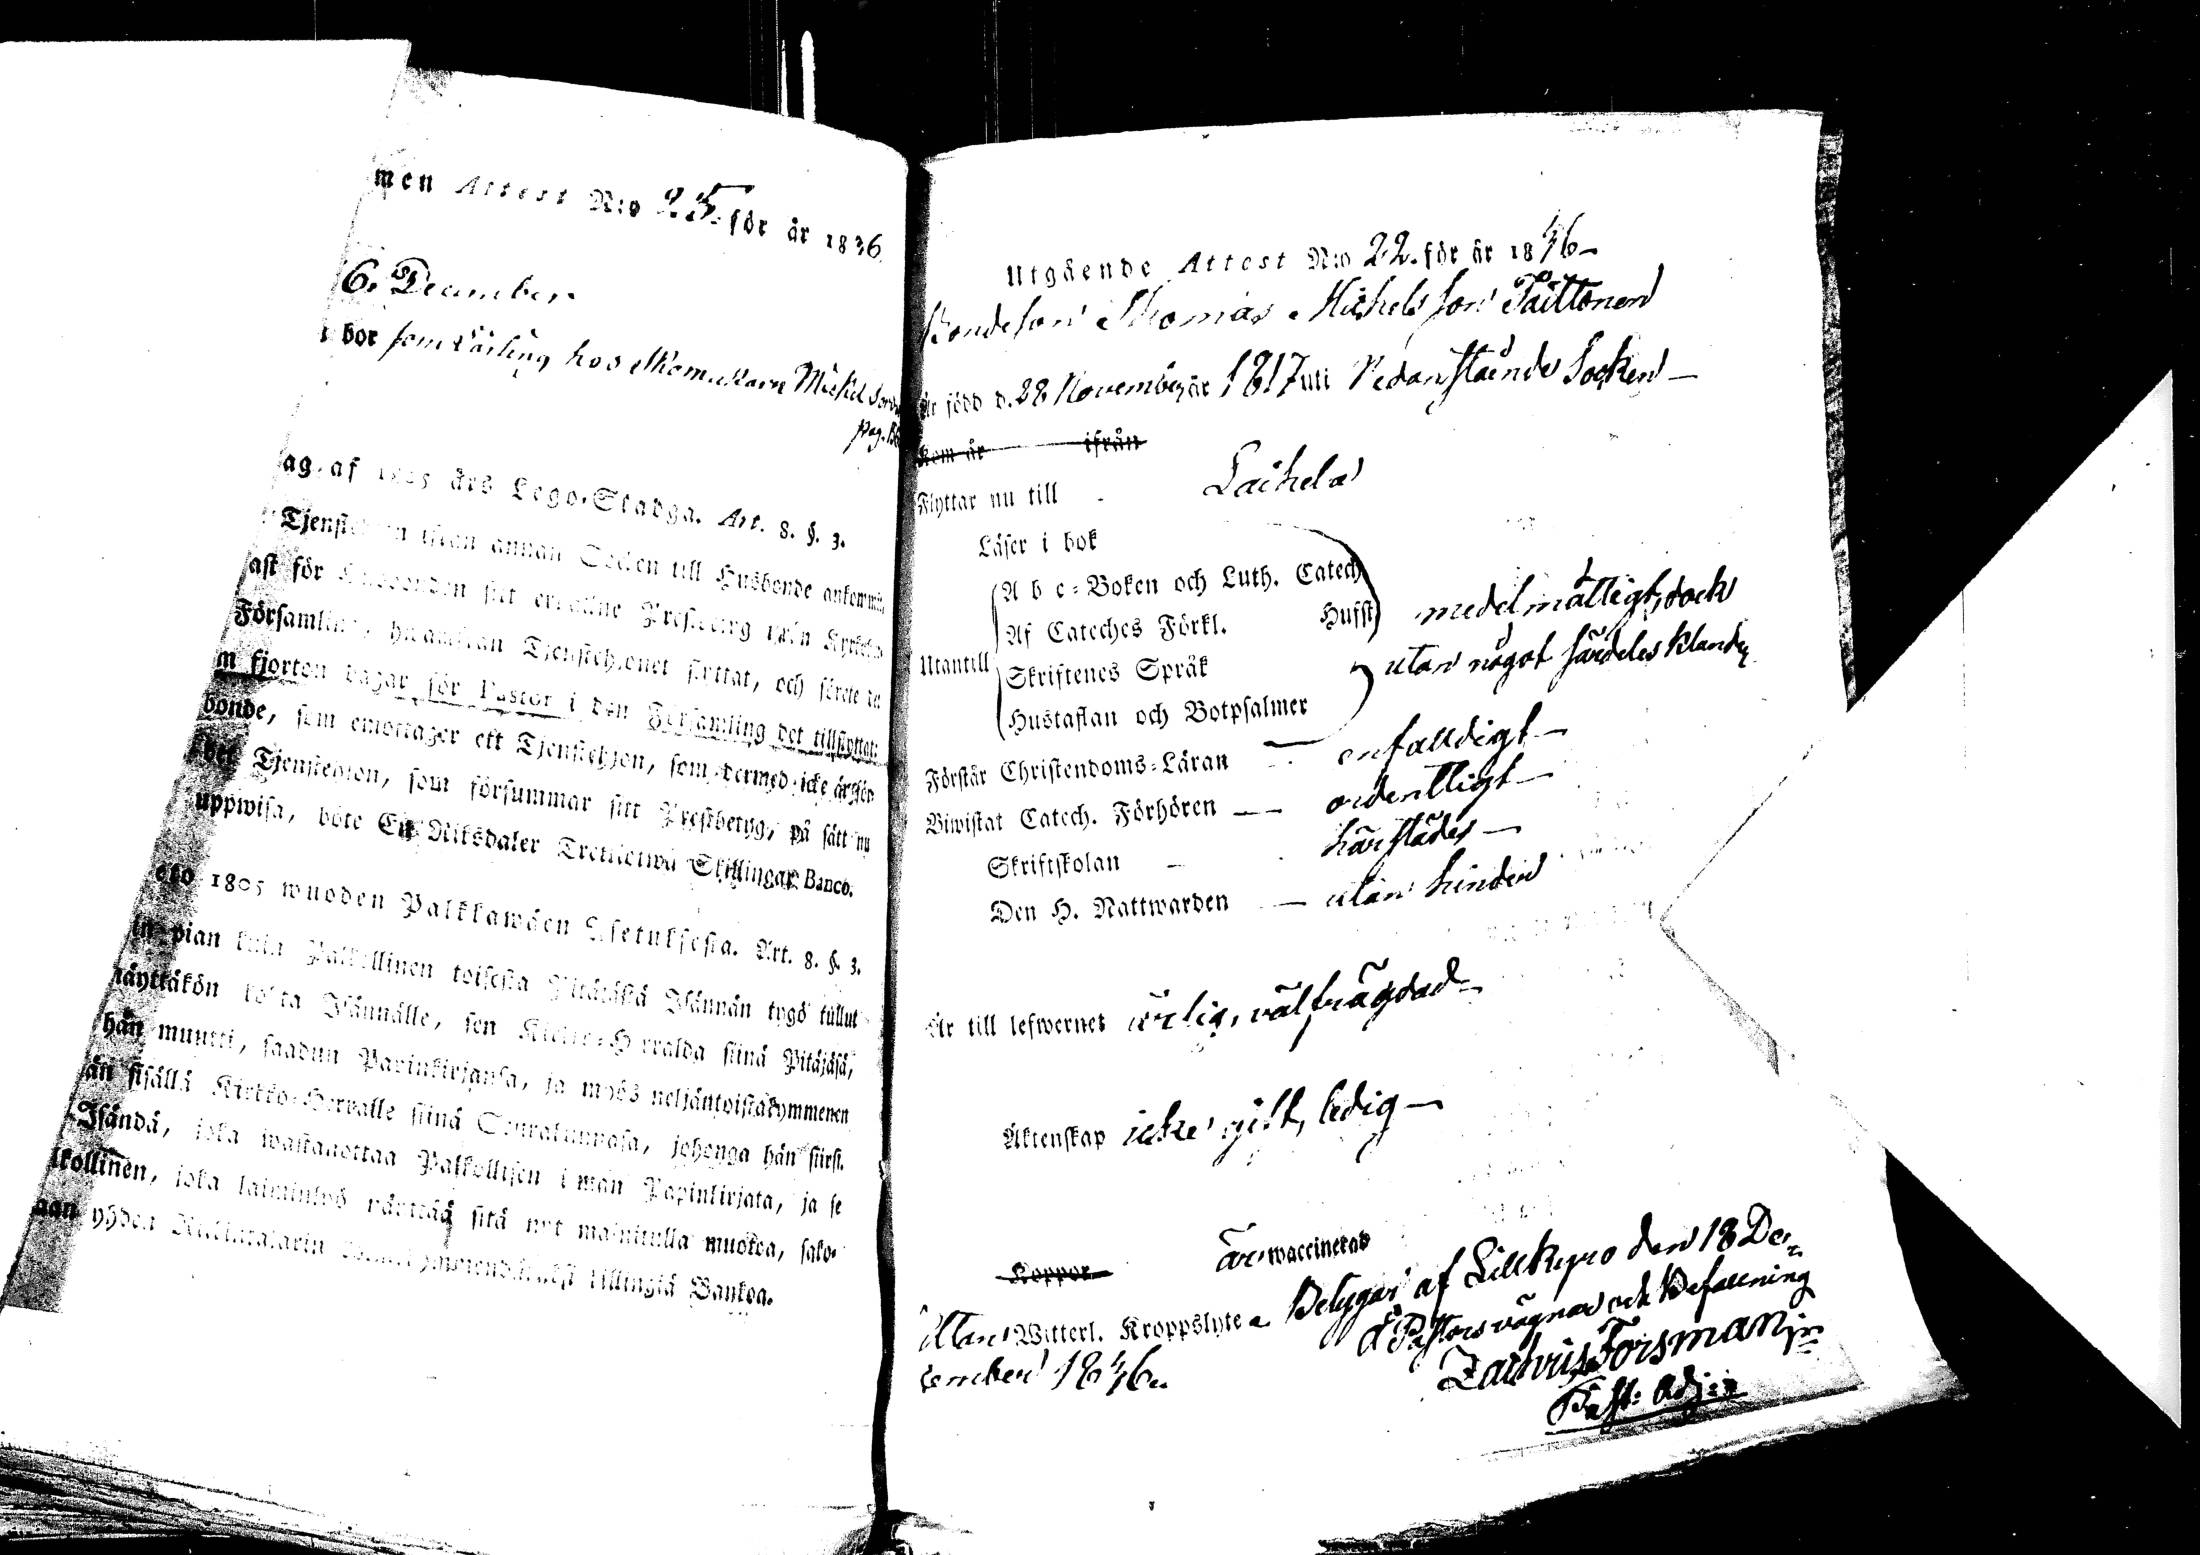 men Attest N:o 25. för år 1836
6. December.
bor som Lärling hos Skomakare Michel
pag.
ag. af 1805 års Lego-Stadga. Art. 8. §. 3.
Tjenstehjon ifrån annan Socken till Husbonde ankommit,
ast för Husbonden sitt erhållne Prestbetyg ifrån Kyrkoh
Församling, hwarifrån Tjenstehjonet flyttat, och förete
m fjorton dagar för Pastor i den Församling det tillflyttat:
bonde, som emottager ett Tjenstehjon, som dermed icke är för
det Tjenstehjon, som försummar sitt Prestbetyg, på sätt nu
uppwisa, böte En Riksdaler Trettiotwå Skillingar Banco.
1805 wuoden Palkkawäen Asetuksesta. Art. 8. §. 3.
in pian kuin Palkollinen toisesta Pitäjästä Isännän tygö tullut
näyttäkön kohta Isännälle, sen Kirkko-Herralda siinä Pitäjäsä,
hän muutti, saadun Papinkirjansa, ja myös neljäntoistakymmenen
än sisällä Kirkko-Herralle siinä Seurakunnasa, johonga hän siirsi.
Isändä, joka wastaanottaa Palkollisen ilman Papinkirjata, ja se
lkollinen, joka laiminlyö näyttää sitä nyt mainitulla muodoa, sako-
aan yhden Riikintalarin killingiä Bankoa.
Utgående Attest N:o 22. för år 1836
Bondeson Thomas Michelsson Päittonen
Är född d. 28 November år 1817 uti Nedanstående Socken
Kom år ifrån
Flyttar nu till Laihela
Läser i bok
A b c-Boken och Luth. Catech.
Af Cateches Förkl. Husst. medelmåttigt, dock
Utantill Skriftenes Språk utan något särdeles klander
Hustaflan och Botpsalmer
Förstår Christendoms-Läran enfalldigt
Biwistat Catech. Förhören ordentligt
Skriftskolan härstädes
Den H. Nattwarden utan hinder
Är till lefwernet ärlig, välfrägdad
Äktenskap icke gift, ledig
Koppor är waccinerad
Utan Witterl. Kroppslyte. Betygar af Lillkyro den 18 De-
cember 1836.
å Pastors vägnar och Befallning
Zachris Forsman jr
Past: Adj: